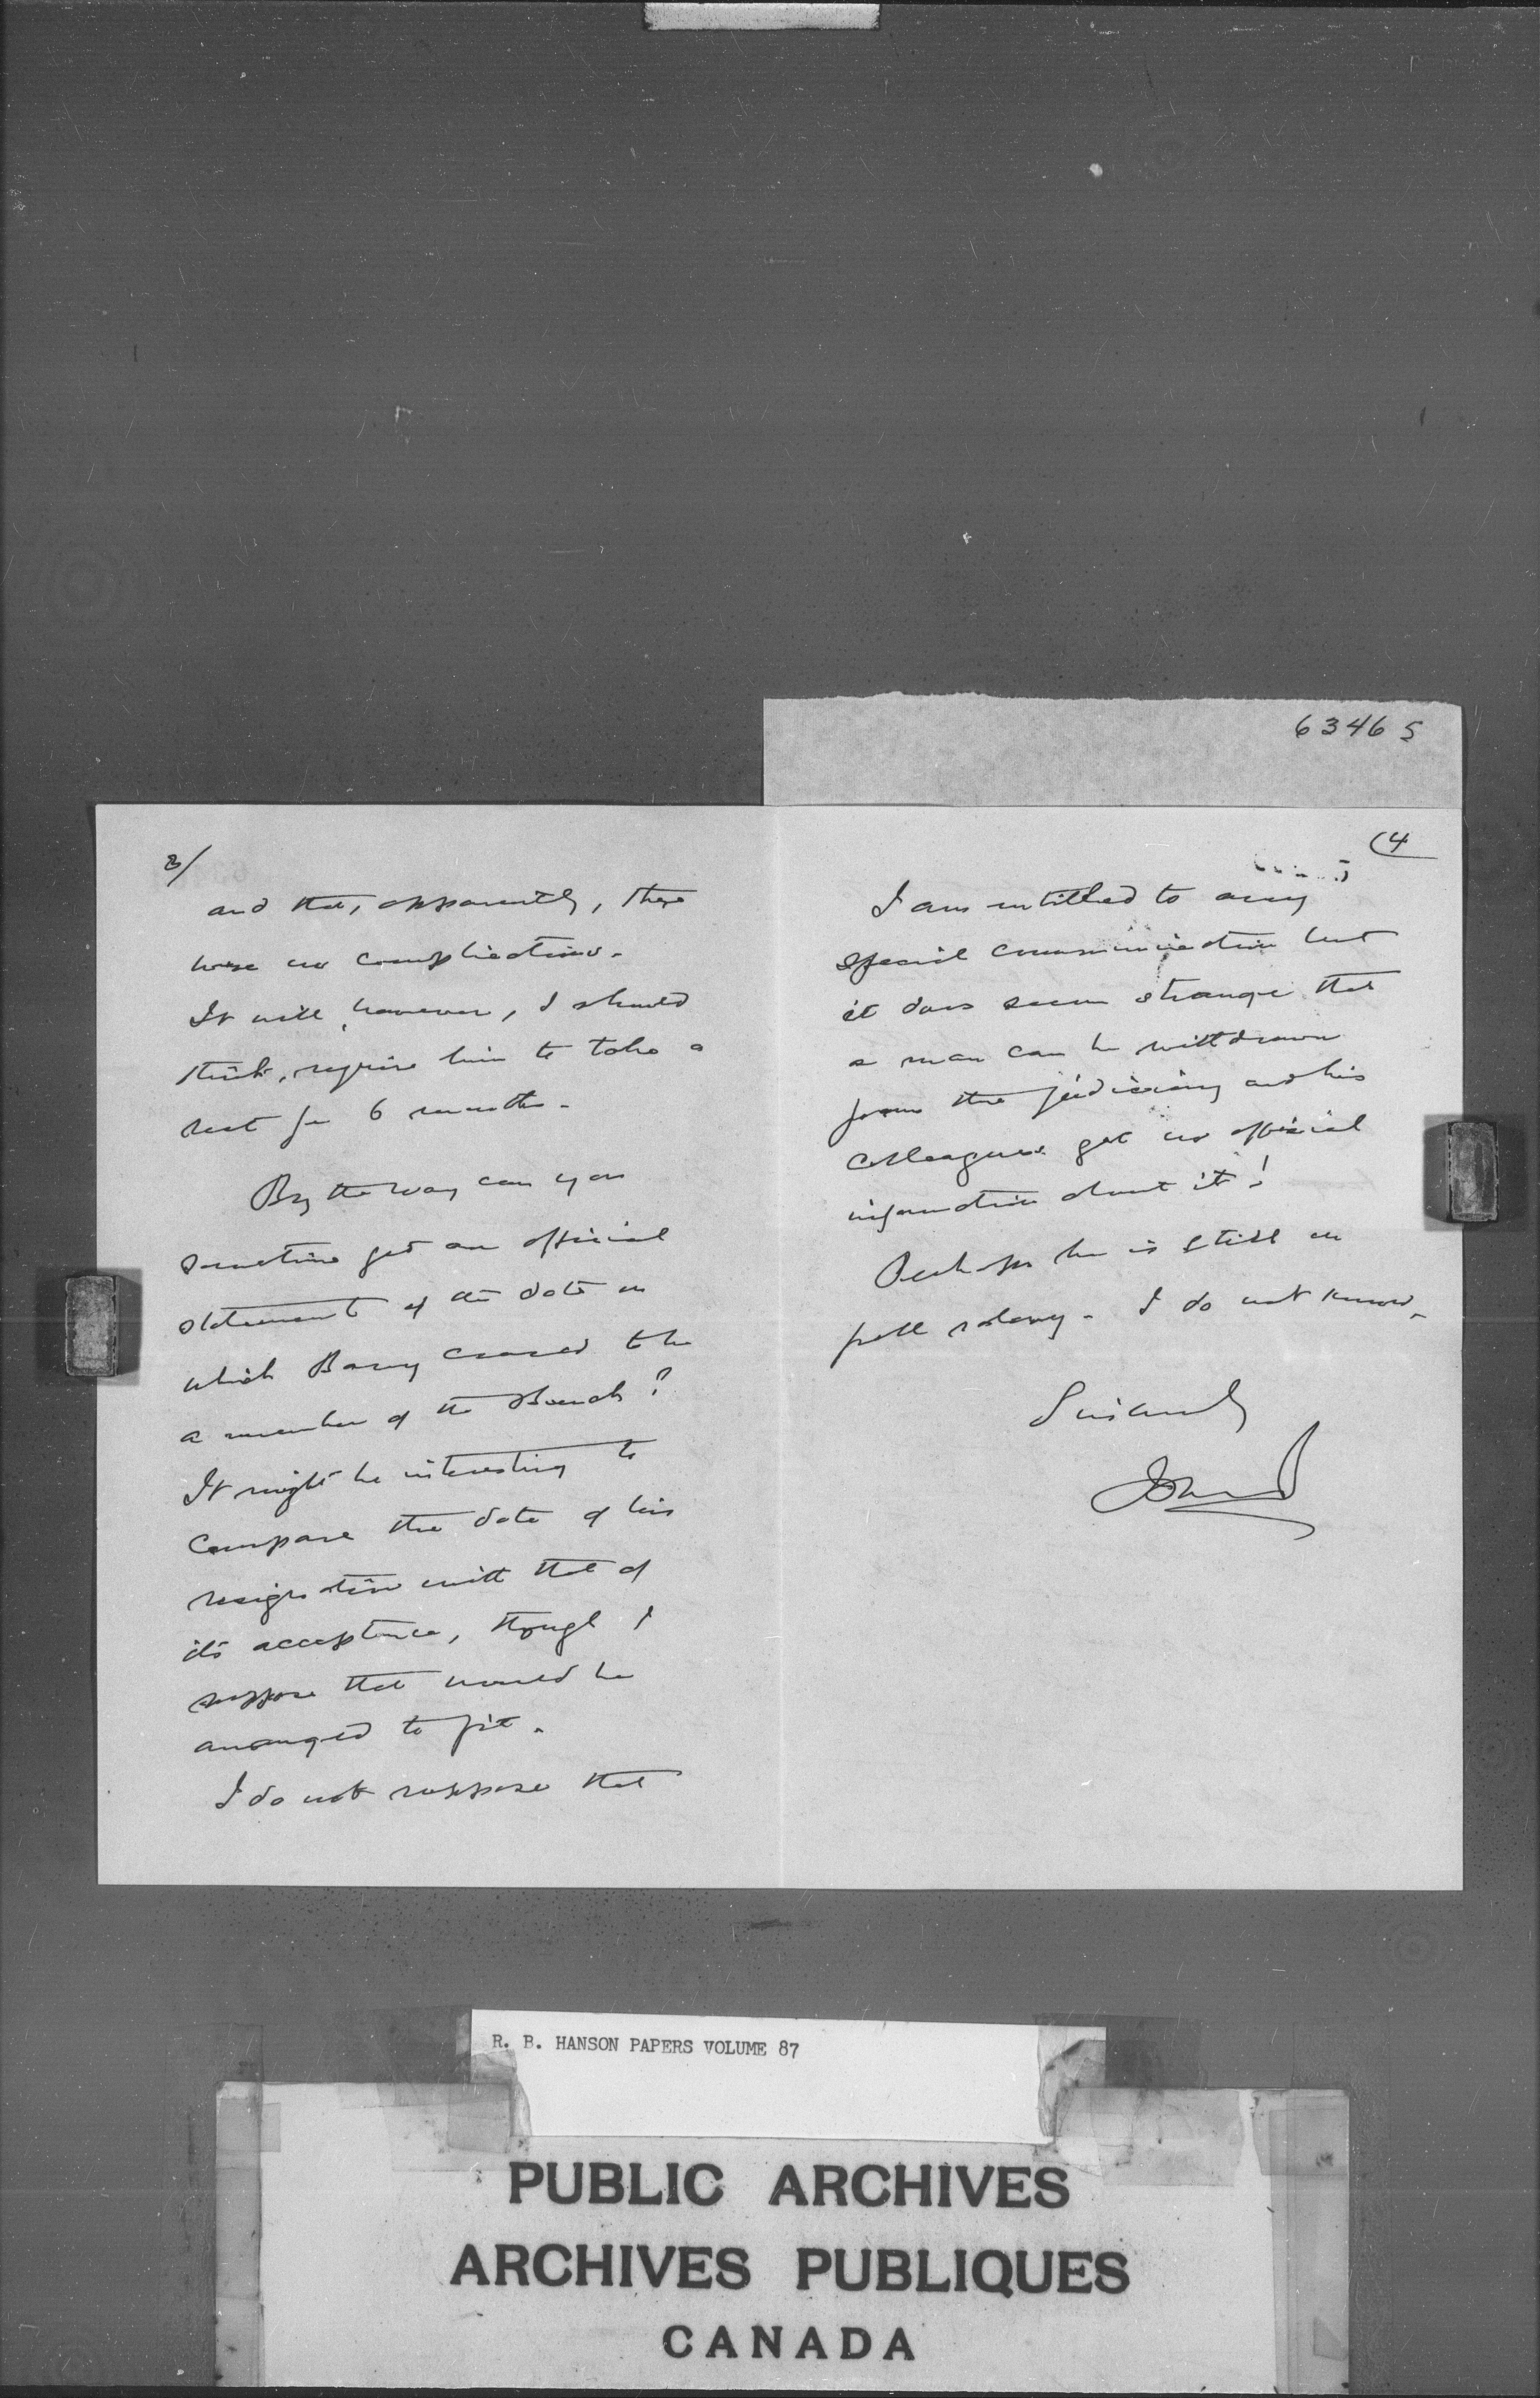 63465
3/
and that, apparently, there
were no complications.
It will, however, I should
think, require him to take a
rest for 6 months.
By the way can you
sometime get an official
statement of the date on
which Barry ceased to be
a member of the Bench?
It might be interesting to
compare the date of his
resignation with that of
its acceptance, though I
suppose that would be
arranged to fit.
I do not suppose that
(4
I am entitled to any
special communication but
it does seem strange that
a man can be withdrawn
from the judiciary and his
colleagues get no official
information about it!
Perhaps he is still on
full salary. I do not know.
Sincerely
R. B. HANSON PAPERS VOLUME 87
PUBLIC ARCHIVES
ARCHIVES PUBLIQUES
CANADA